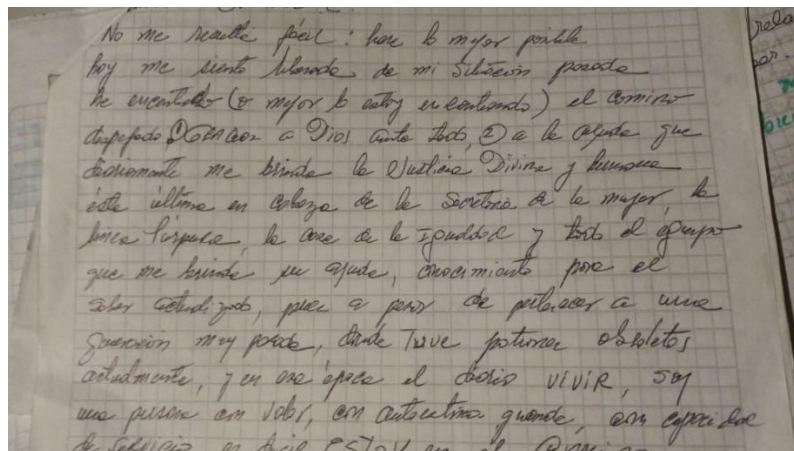 No me resulta fácil: hare lo mejor posible
hoy me siento liberada de mi situación pasada
he encontrado (o mejor lo estoy encontrando) el camino
despejado ① GRACIAS a Dios ante todo, ② a la ayuda que
diariamente me brinda la Justicia Divina y humana
ésta última en cabeza de la Secretaria de la mujer, la
línea Púrpura, la casa de la Igualdad y todo el grupo
que me brinda su ayuda, conocimiento para el
saber actualizado, pues a pesar de pertenecer a una
generación muy pasada, donde Tuve patrones obsoletos
actualmente, y en esa época el diario VIVIR, soy
una persona con valor, con autoestima grande, con capacidad
de servicio es decir ESTOY en el Camino
rela